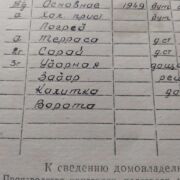 Основное 1949 дут
а Хол. прис
Погреб
а Терраса д.ст
2г Сарай д.ст
3г Уборная доща
Забор реш
Калитка
Ворота
К сведению домовладел